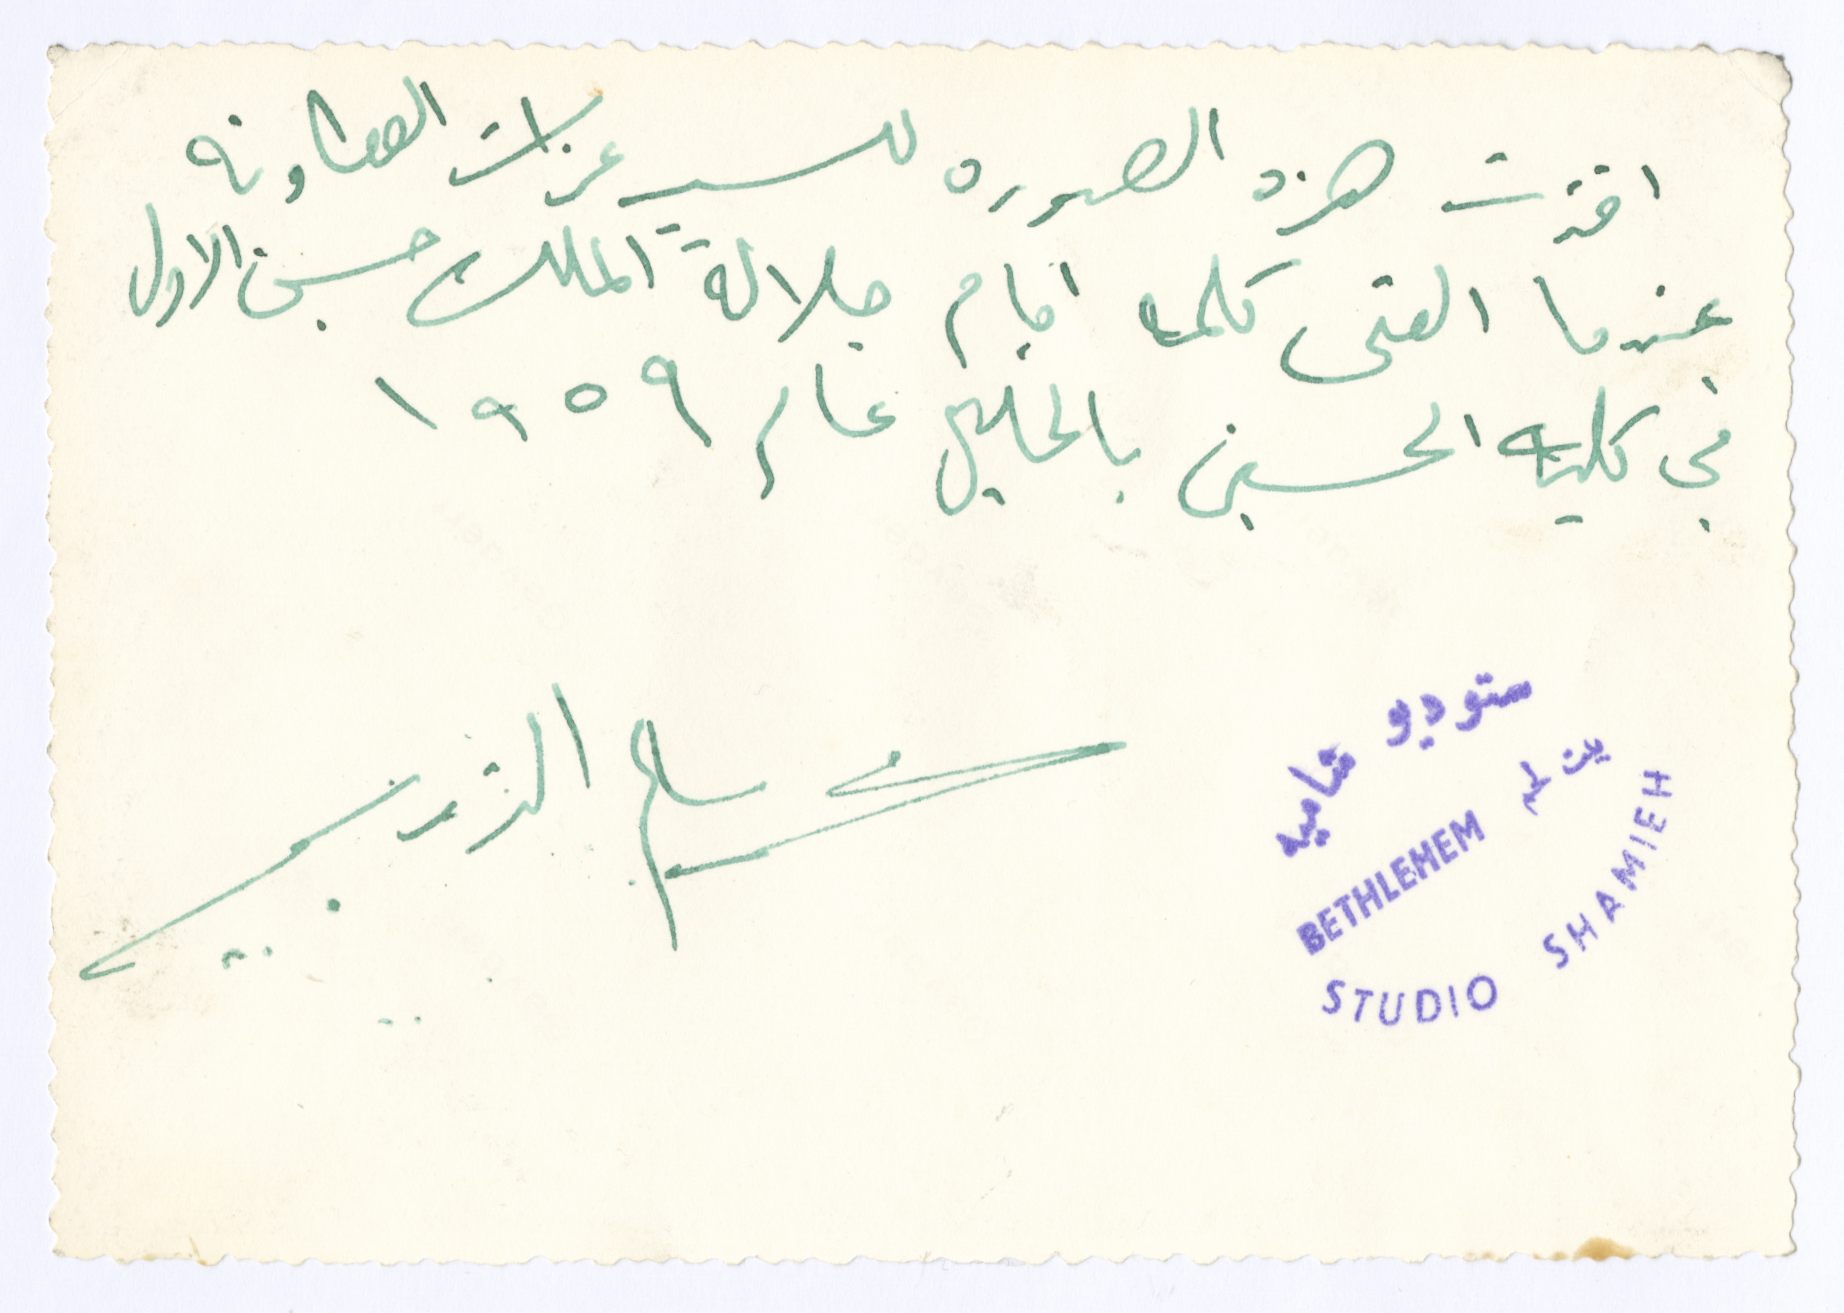 اخذت هذه الصوره للسيد عزات العطاونه
عندما القى كلمه امام جلالة الملك حسين الاول
في كلية الحسين بالخليل عام ١٩٥٩
ستوديو شاميه
بيت لحم
BETHLEHEM
STUDIO SHAMIEH